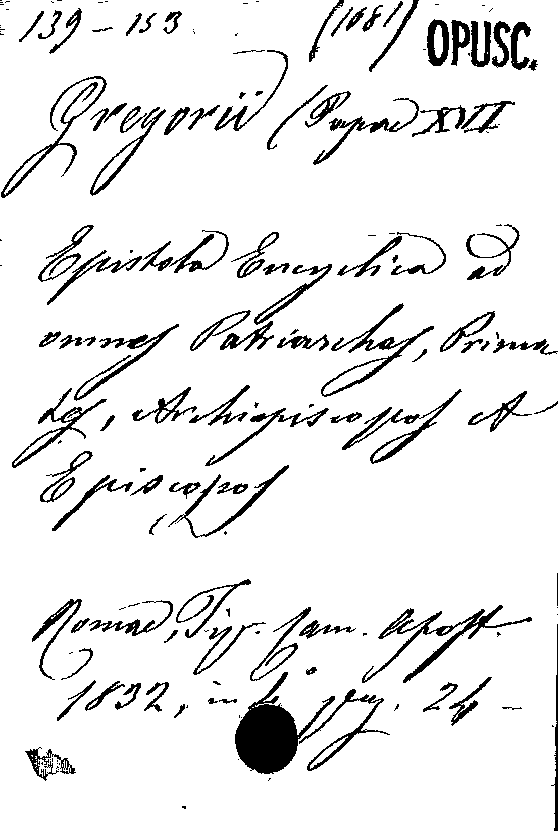 139 – 153 (1681) OPUSC.
Gregorii (Papae XVI
Epistola Encyclica ad
omnes Patriarchas, Prima
tes, Archiepiscopos et
Episcopos
Romae, Typ. Cam. Apost.
1832, in 4° pag. 24 –